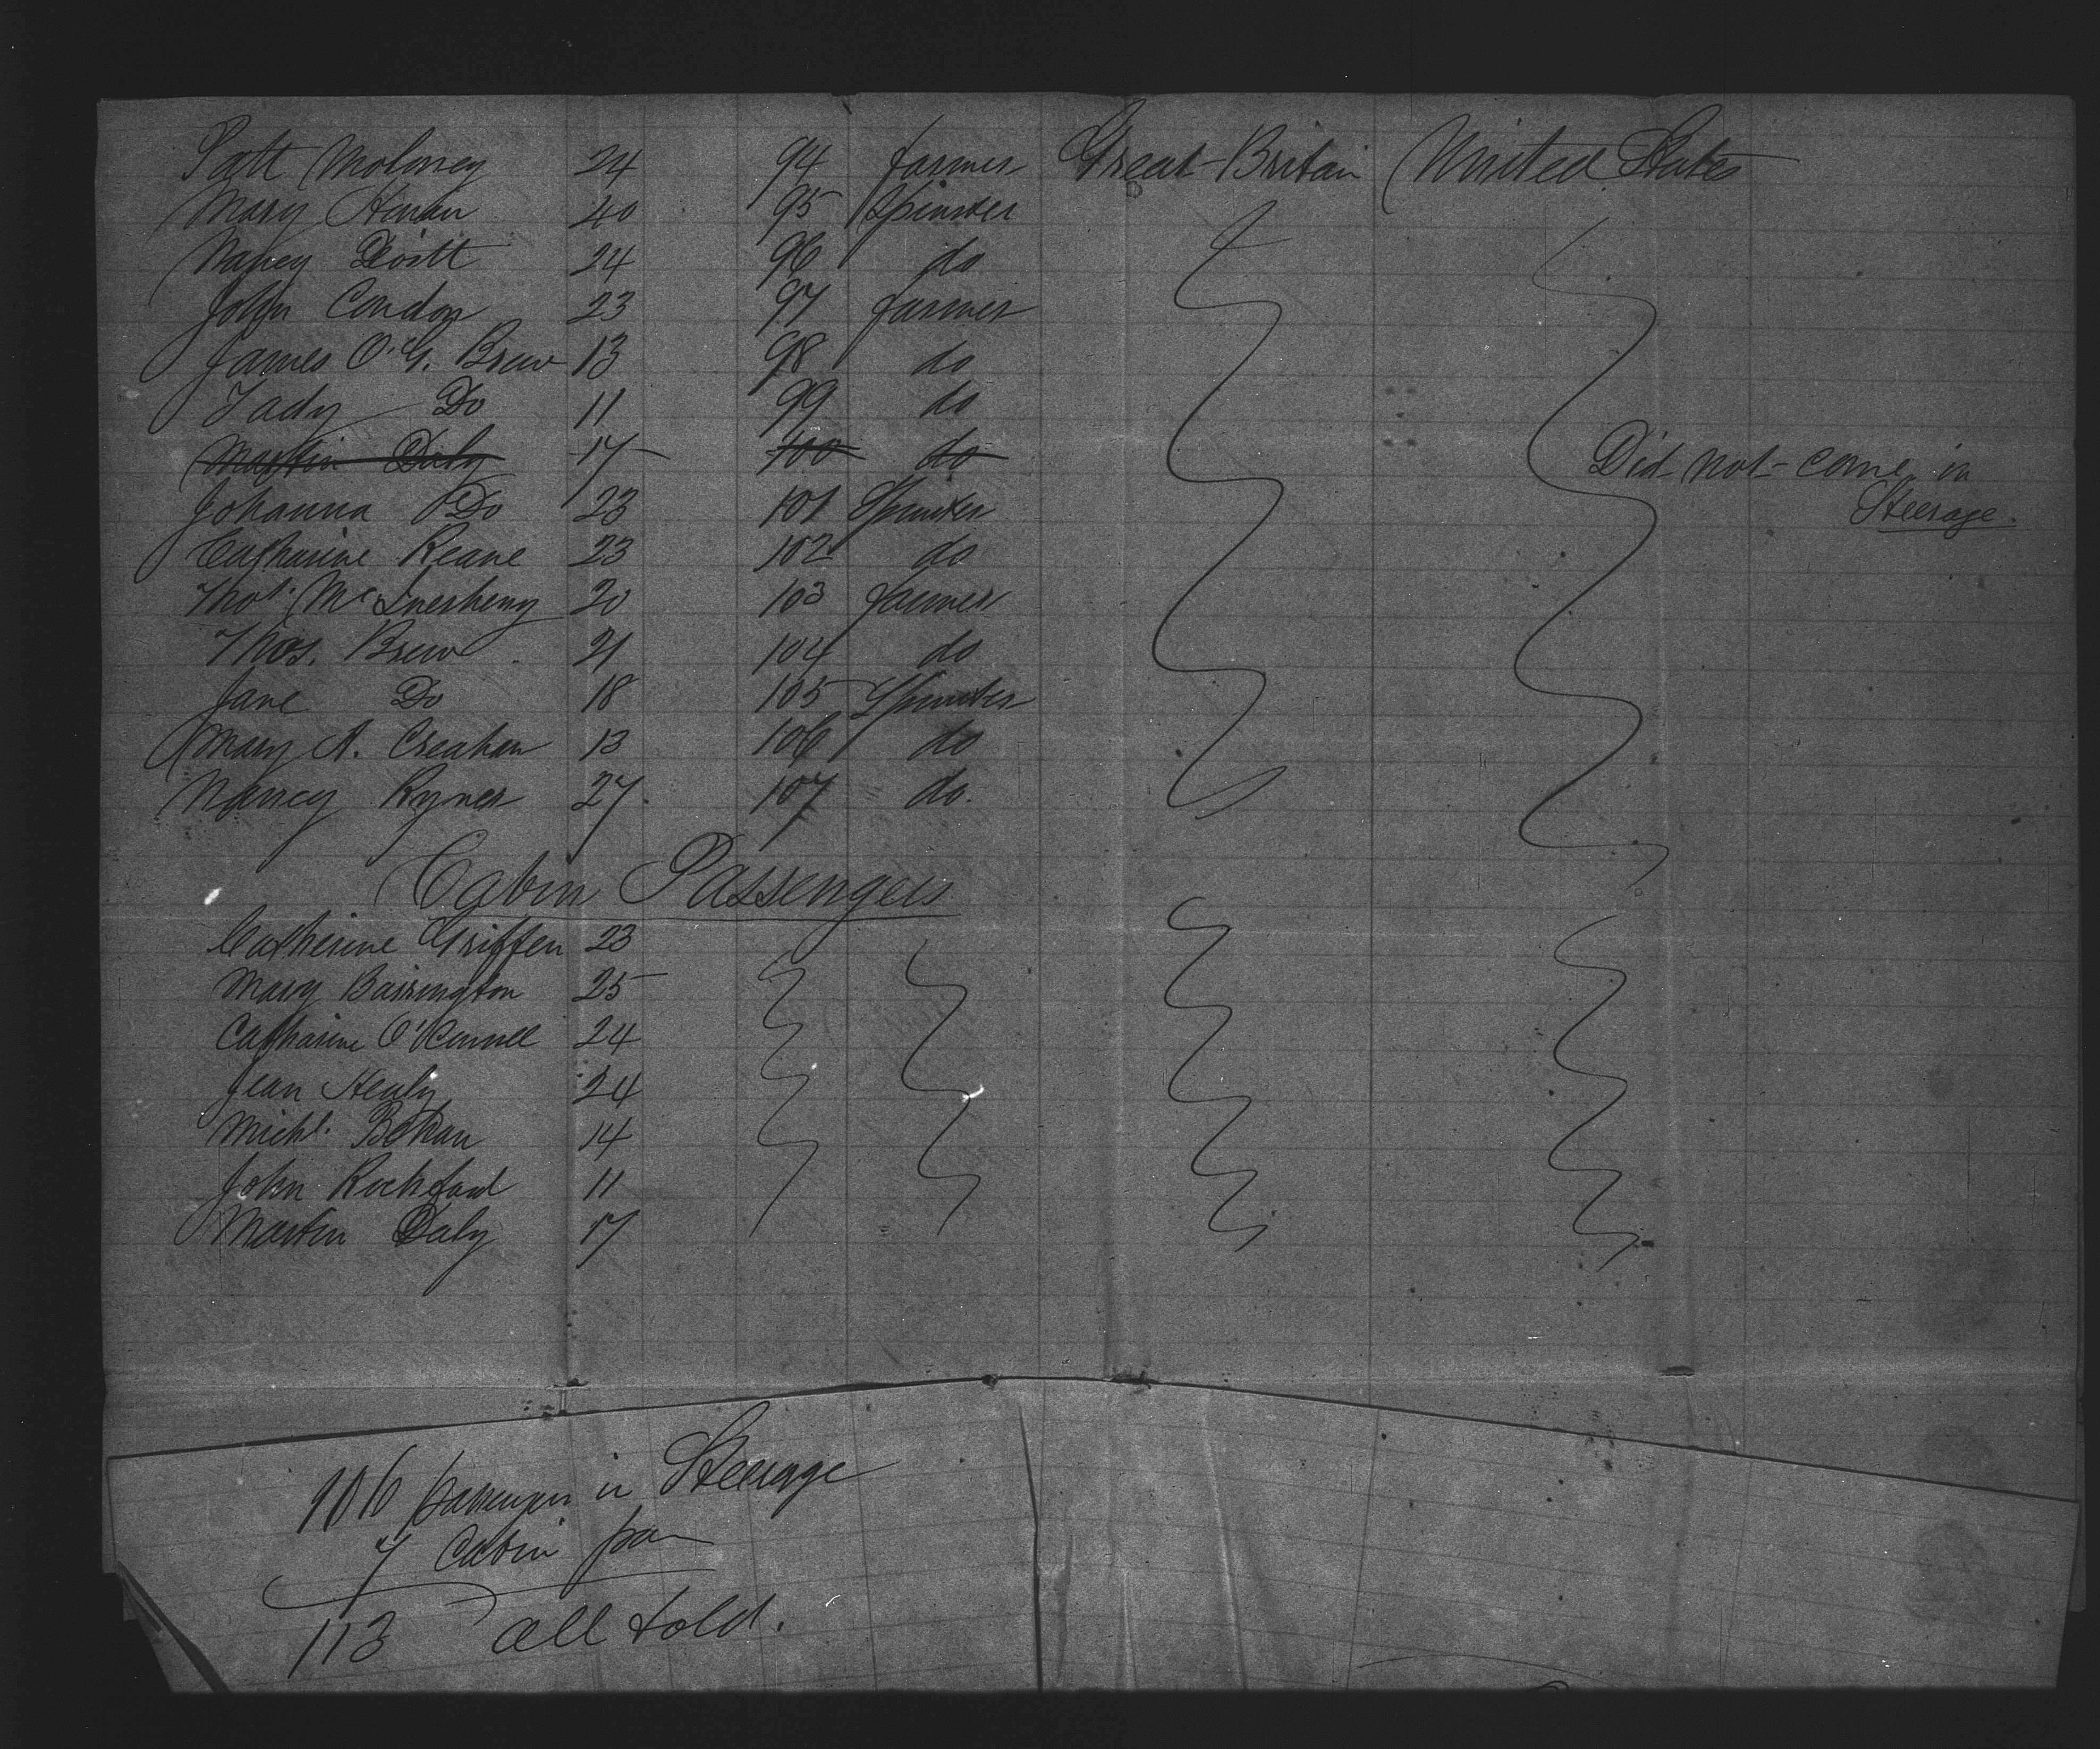 Patt Moloney 24 94 farmer Great-Britain United States
Mary Honan 40 95 Spinster
Nancy 24 96 do
John Condon 23 97 farmer
James O'G. Brew 13 98 do
Tady Do 11 99 do
Martin Daly 17 100 do Did not come in
Steerage.
Johanna Do 23 101 Spinster
Catharine Keane 23 102 do
20 103 farmer
Thos. Brew 21 104 do
Jane Do 18 105 Spinster
Mary A. Creahan 13 106 do
Nancy Rynes 27. 107 do.
Cabin Passengers
Catherine Griffen 23
Mary Barrington 25
Catharine O'Connell 24
Jean Healy 24
Michl. Bohan 14
John Rochford 11
Martin Daly 17
106 passengers in Steerage
7 Cabin
113 all told.